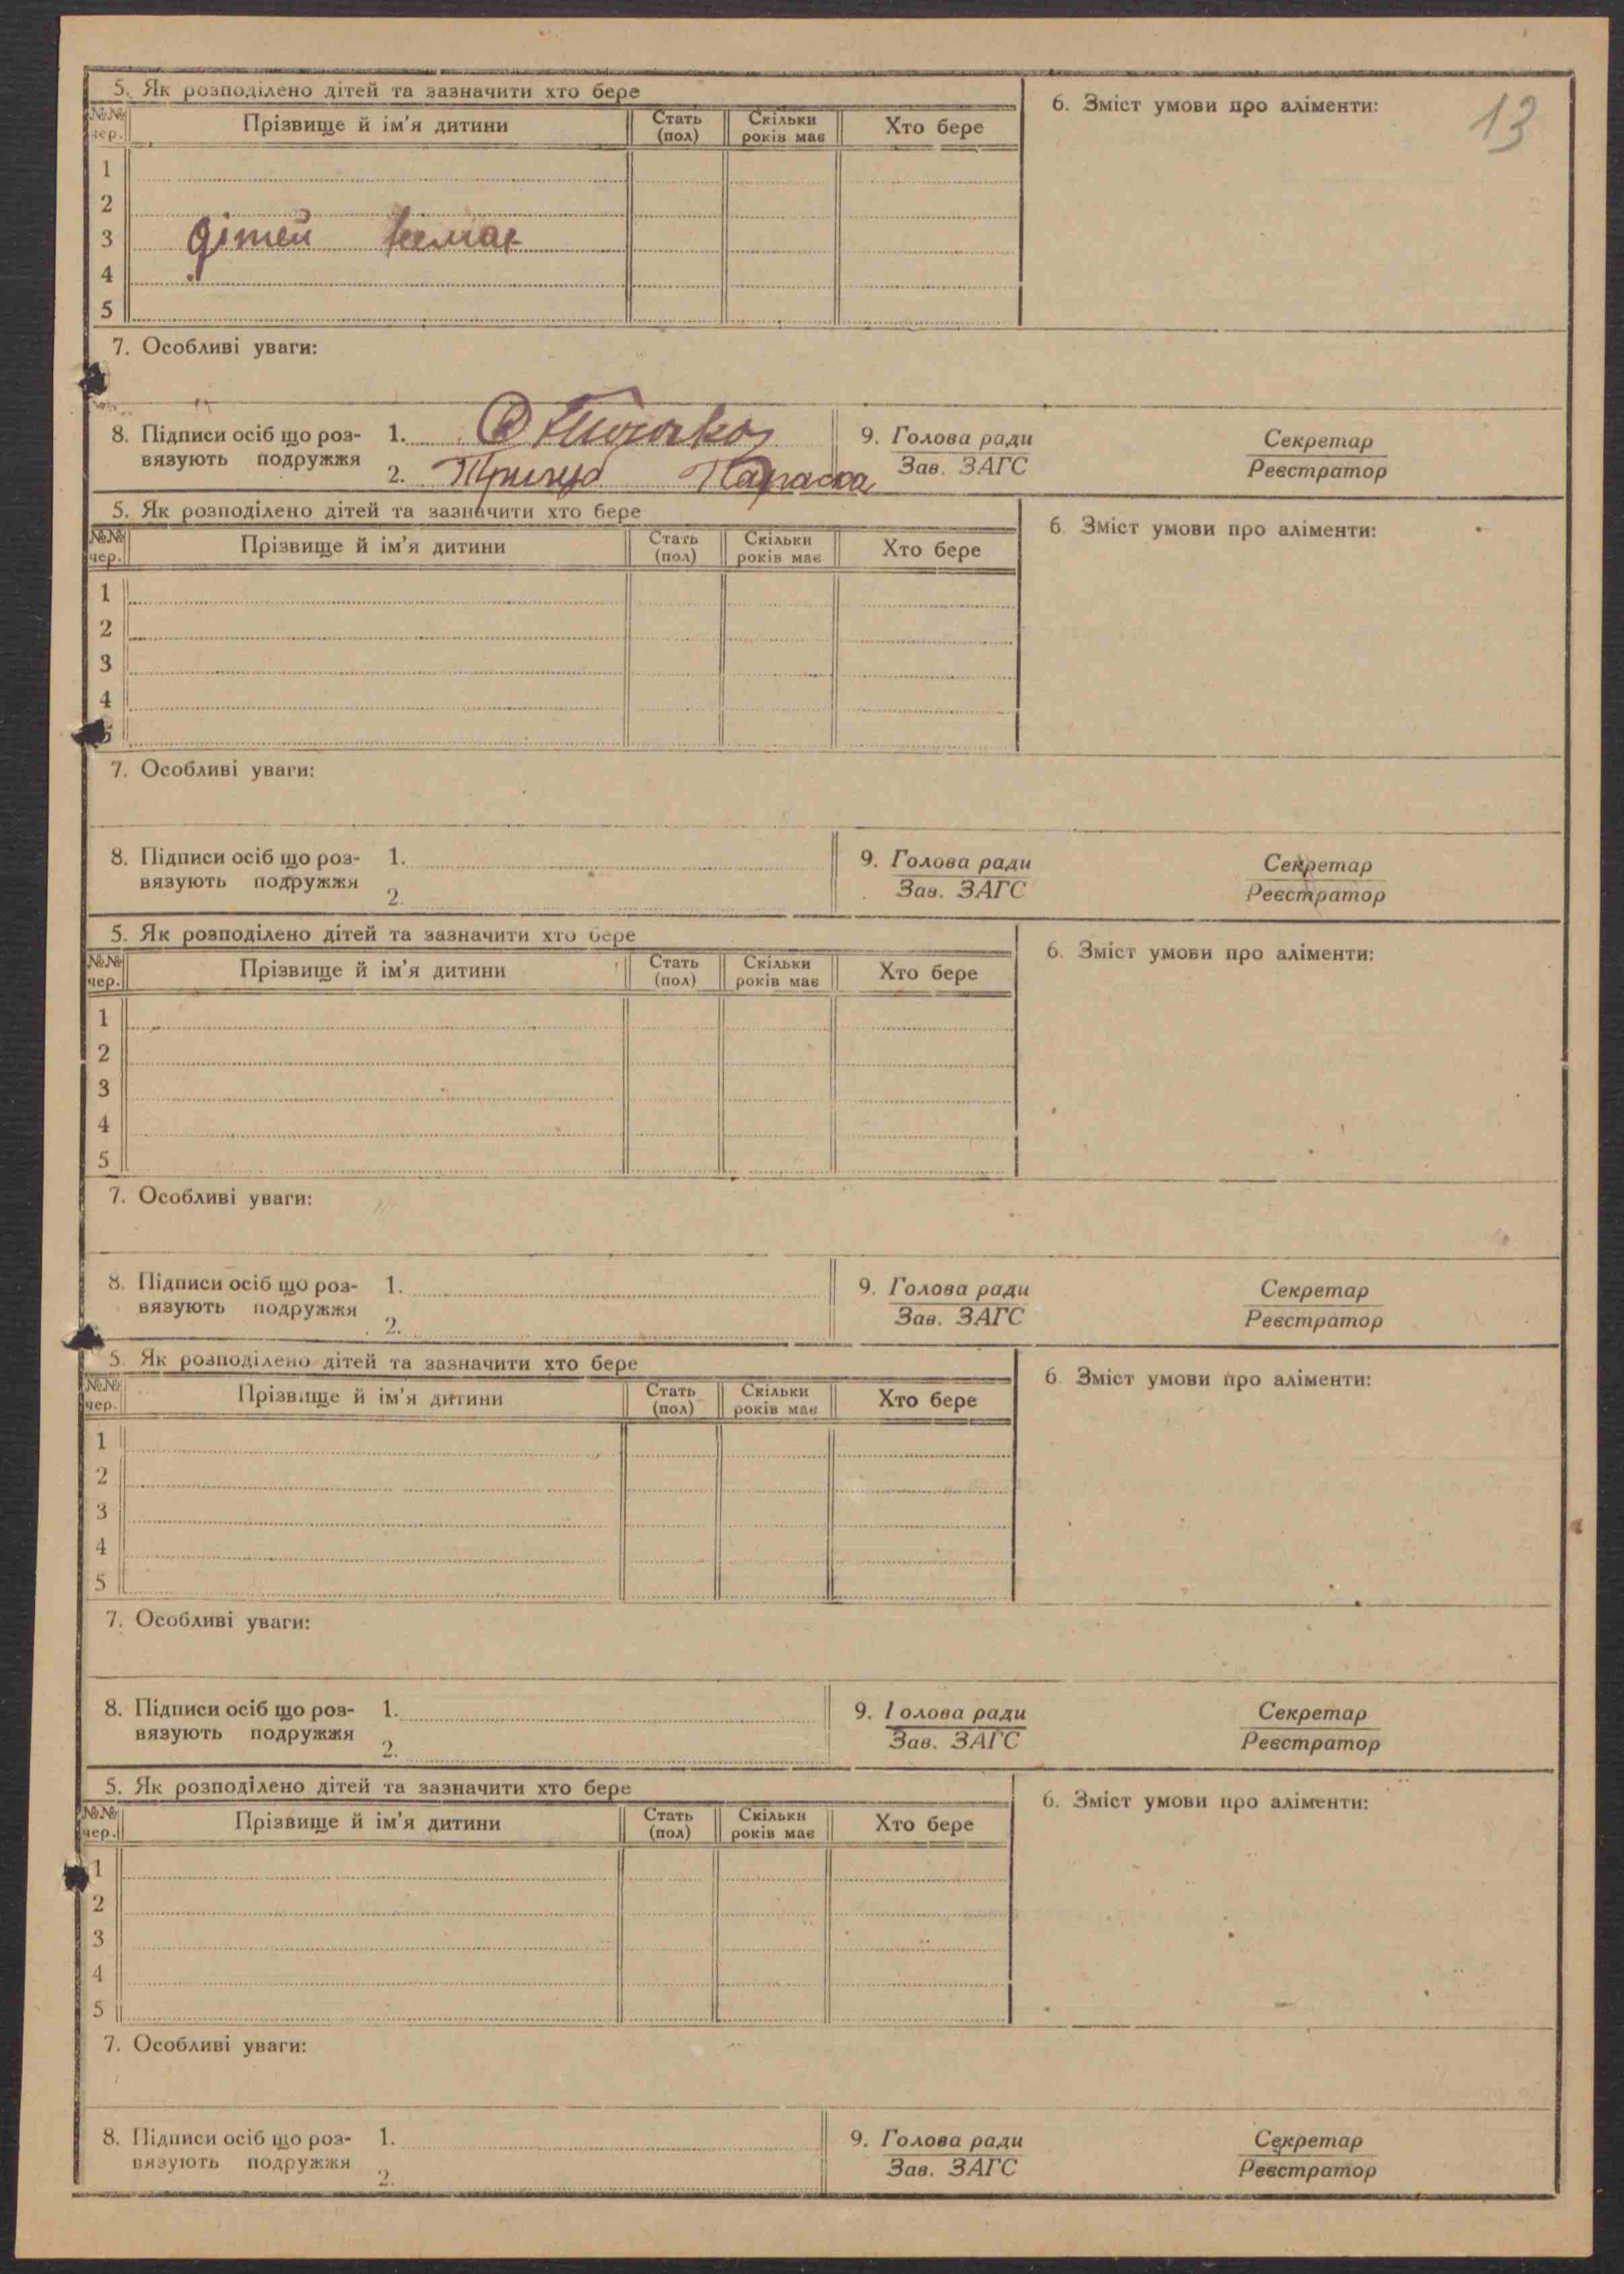 13
5. Як розподілено дітей та зазначити хто бере
6. Зміст умови про аліменти:
№№ чер. Прізвище й ім'я дитини Стать (пол) Скільки років має Хто бере
1
2
3 дітей немає
4
5
7. Особливі уваги:
8. Підписи осіб що роз- 1.
вязують подружжя 2. Параска
9. Голова ради Секретар
Зав. ЗАГС Реєстратор
5. Як розподілено дітей та зазначити хто бере
6 Зміст умови про аліменти:
№№ чер. Прізвище й ім'я дитини Стать (пол) Скільки років має Хто бере
1
2
3
4
5
7. Особливі уваги:
8. Підписи осіб що роз- 1.
вязують подружжя 2.
9. Голова ради Секретар
Зав. ЗАГС Реєстратор
5. Як розподілено дітей та зазначити хто бере
6. Зміст умови про аліменти:
№№ чер. Прізвище й ім'я дитини Стать (пол) Скільки років має Хто бере
1
2
3
4
5
7. Особливі уваги:
8. Підписи осіб що роз- 1.
вязують подружжя 2.
9. Голова ради Секретар
Зав. ЗАГС Реєстратор
5. Як розподілено дітей та зазначити хто бере
6. Зміст умови про аліменти:
№№ чер. Прізвище й ім'я дитини Стать (пол) Скільки років має Хто бере
1
2
3
4
5
7. Особливі уваги:
8. Підписи осіб що роз- 1.
вязують подружжя 2.
9. Голова ради Секретар
Зав. ЗАГС Реєстратор
5. Як розподілено дітей та зазначити хто бере
6. Зміст умови про аліменти:
№№ чер. Прізвище й ім'я дитини Стать (пол) Скільки років має Хто бере
1
2
3
4
5
7. Особливі уваги:
8. Підписи осіб що роз- 1.
вязують подружжя 2.
9. Голова ради Секретар
Зав. ЗАГС Реєстратор